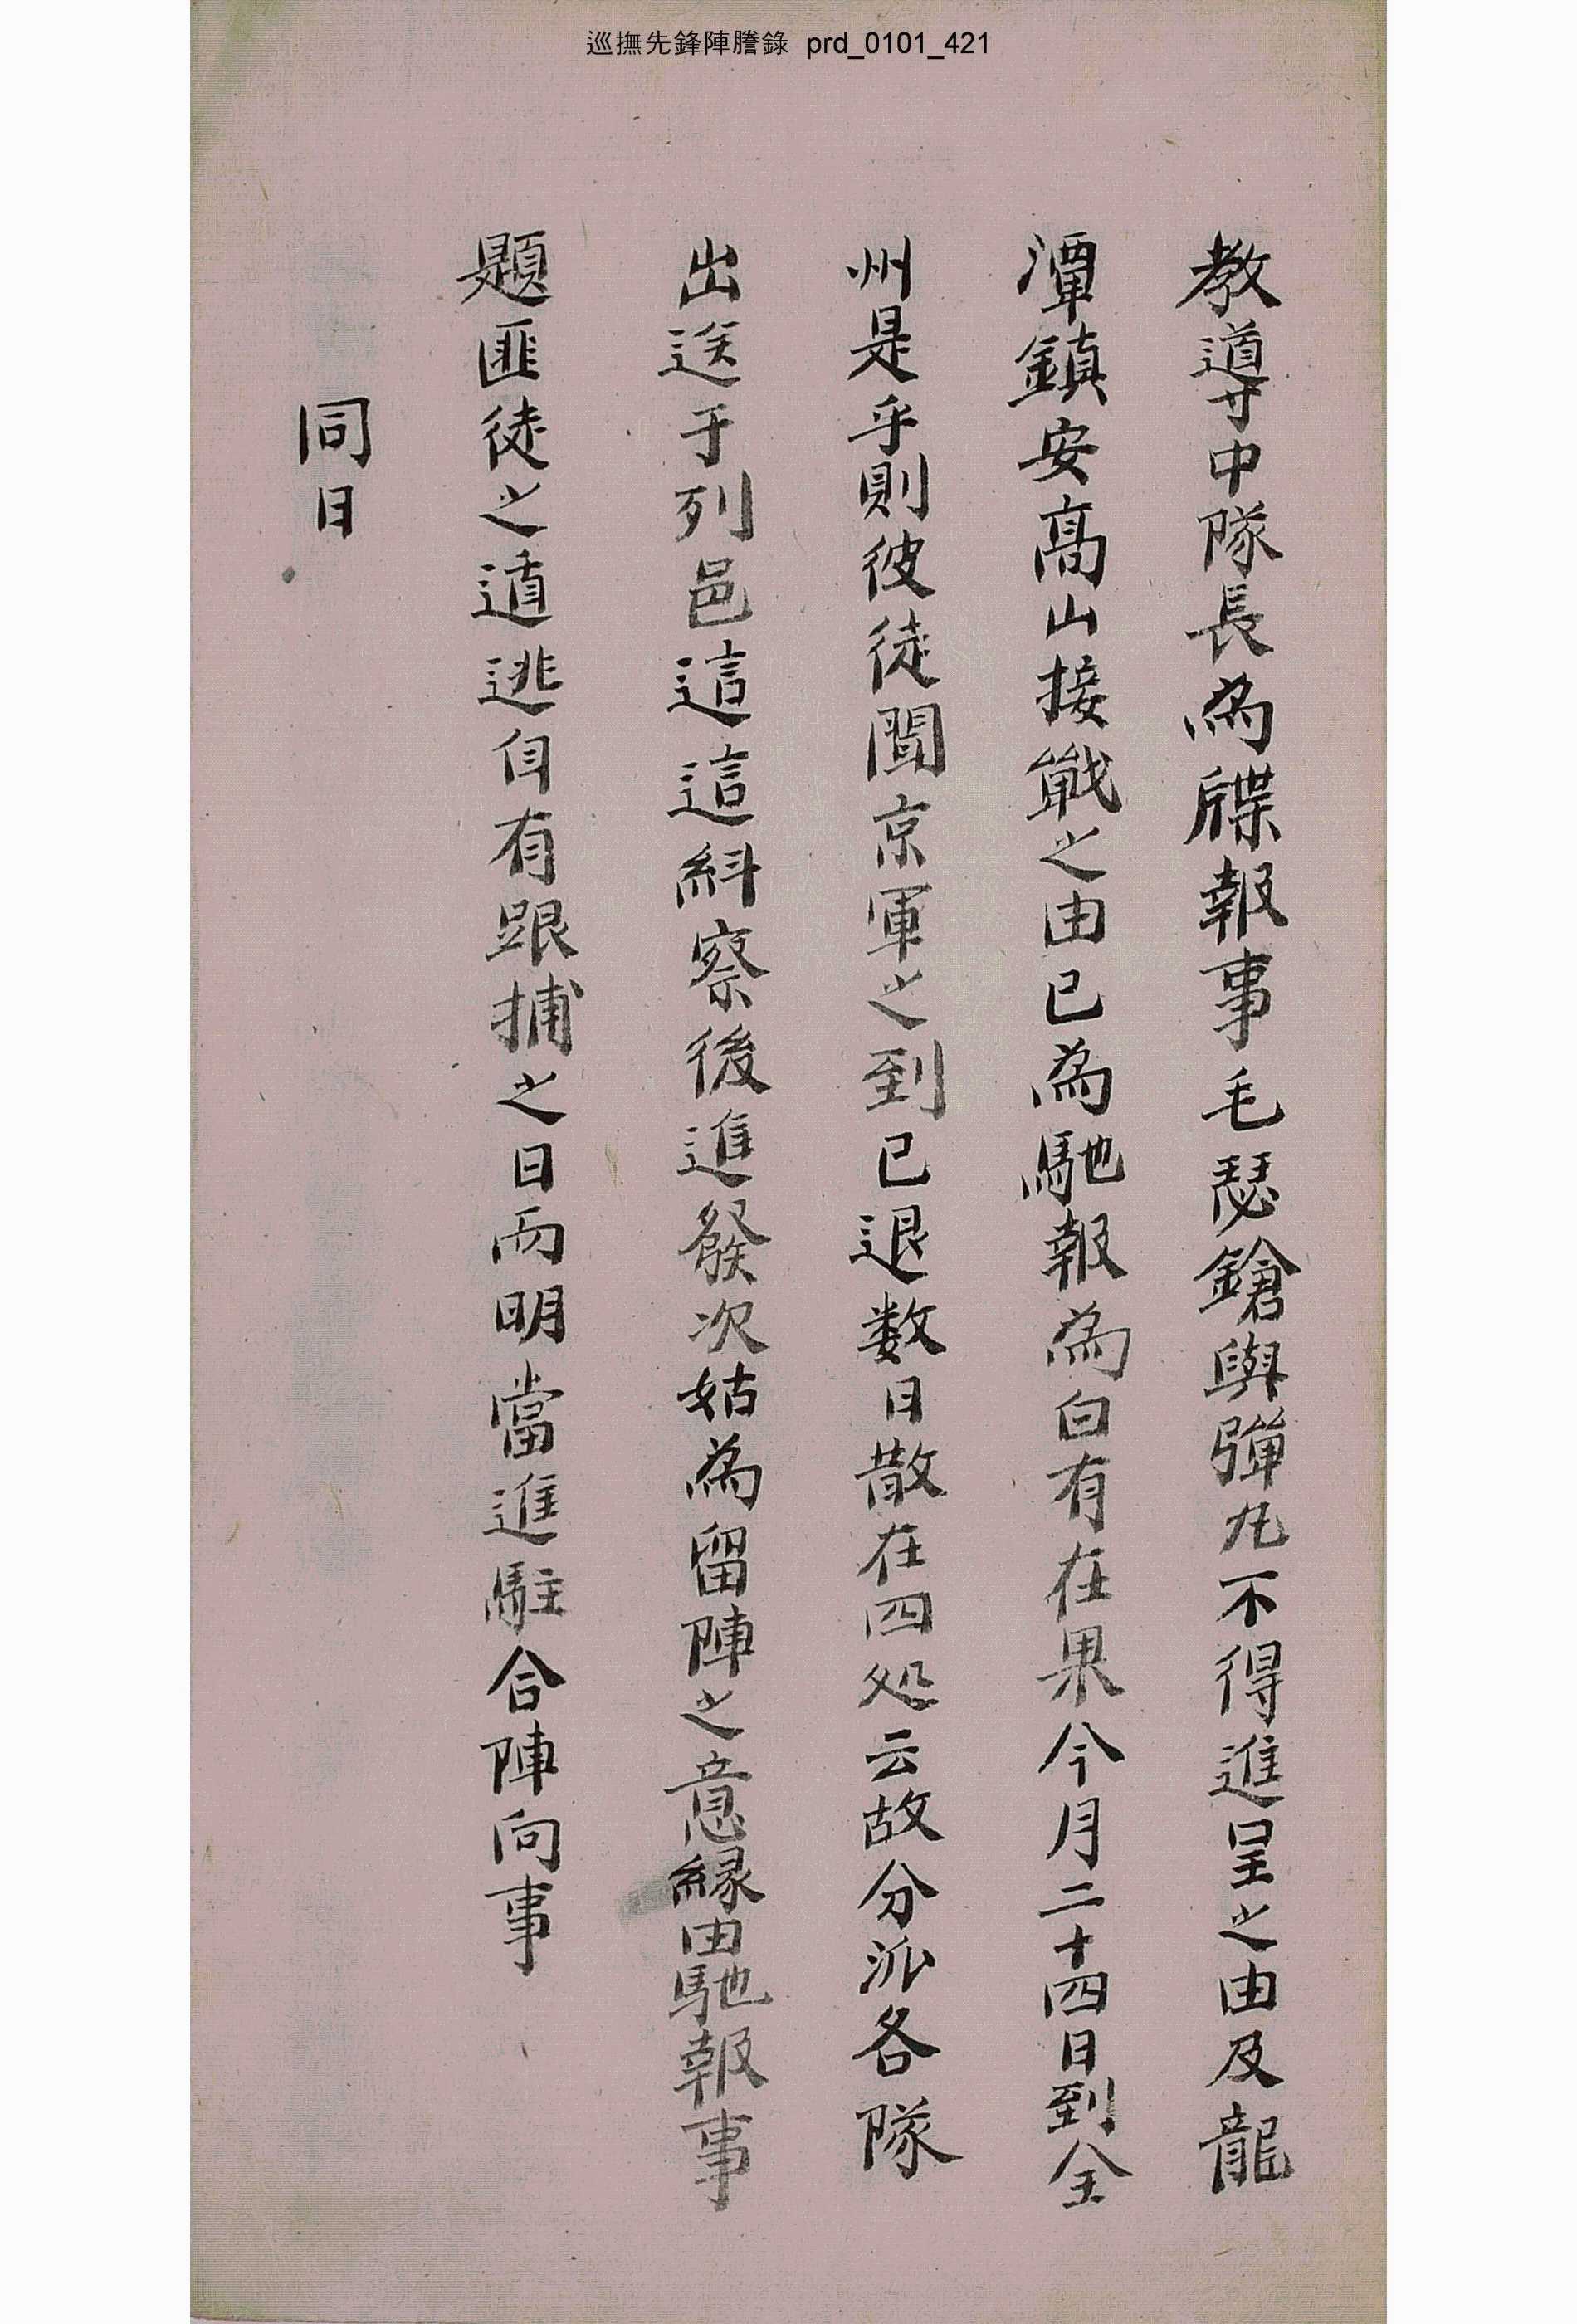 巡撫先鋒陣謄錄 prd_0101_421
教導中隊長爲牒報事毛瑟鎗與彈丸不得進呈之由及龍
潭鎮安高山接戰之由已爲馳報爲白有在果今月二十四日到全
州是乎則彼徒聞京軍之到已退数日散在四処云故分派各隊
出送于列邑這這紏察後進發次姑爲留陣之意緣由馳報事
題匪徒之遁逃自有跟捕之日而明當進駐合陣向事
同日